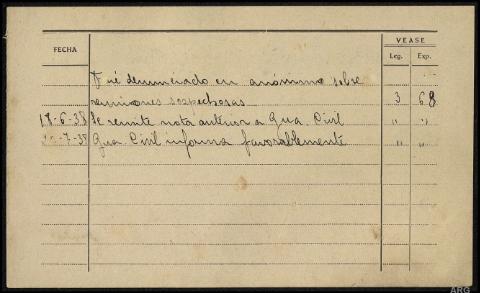 FECHA VEASE
Leg. Exp.
Fué denunciado en anónimo sobre
reuniones sospechosas 3 68
18-6-38 Se remite nota anterior a Gua. Civil " "
-7-38 Gua. Civil informa favorablemente " "
ARG